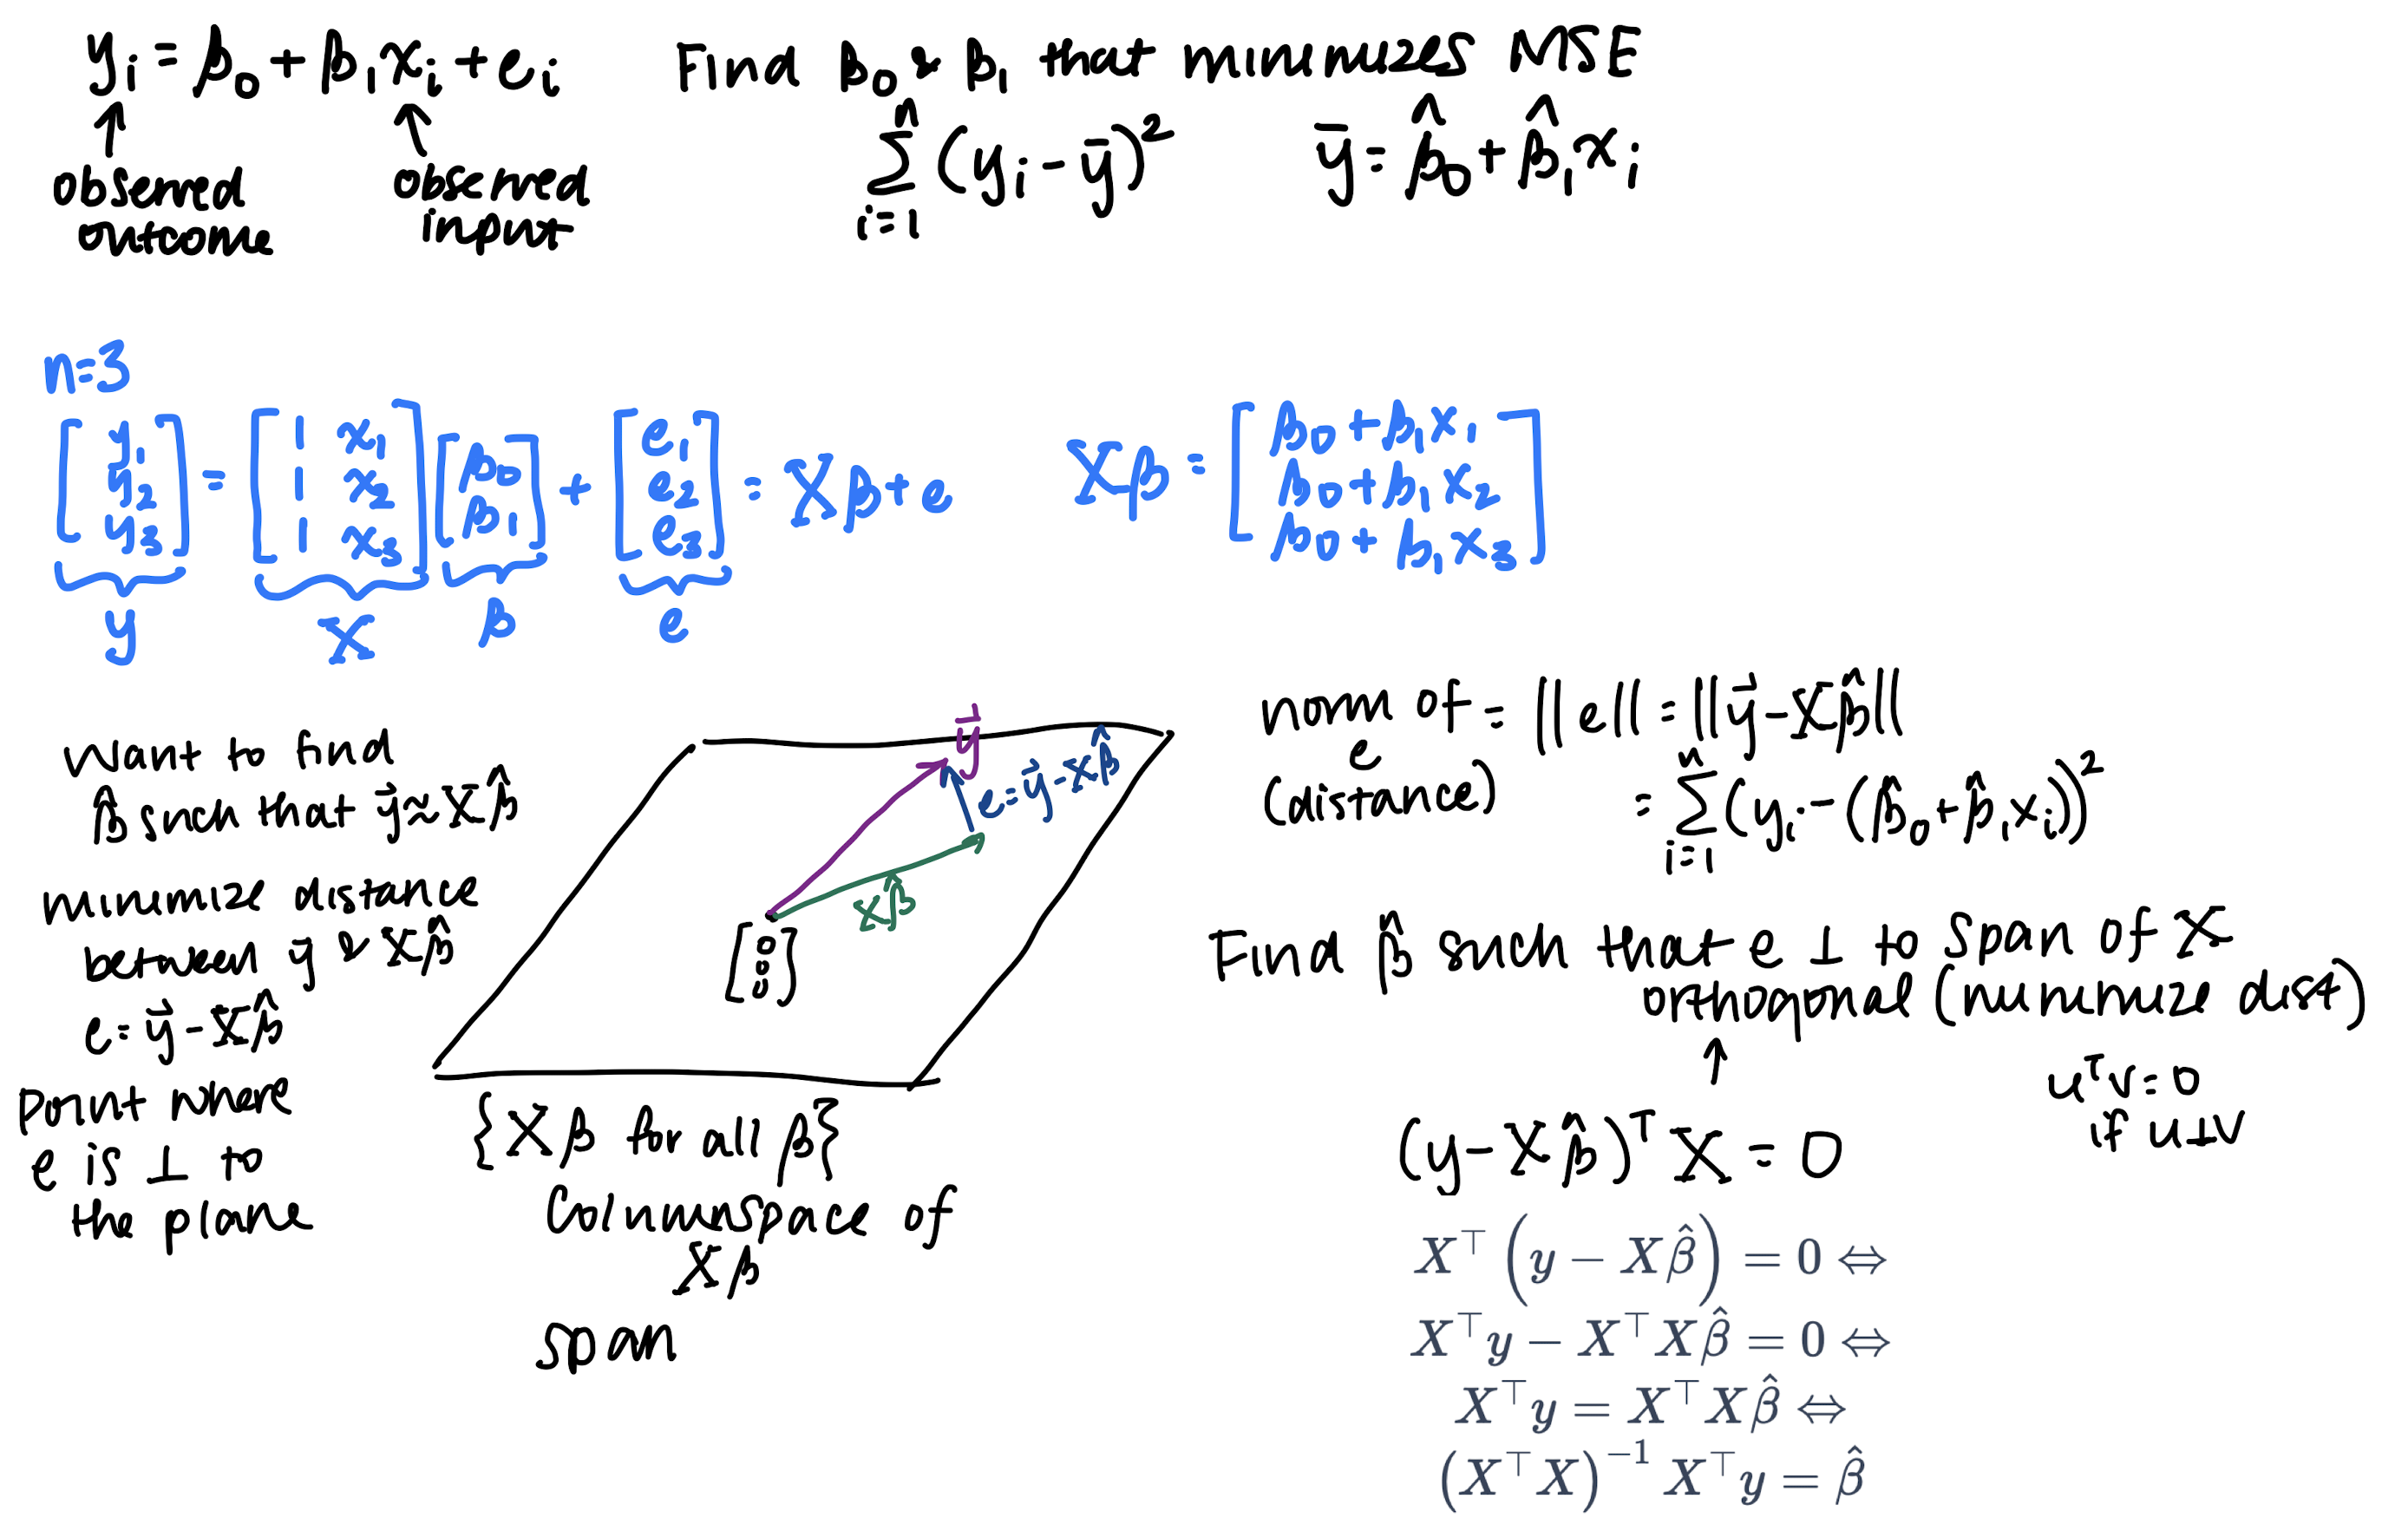 yᵢ = β₀ + β₁xᵢ + eᵢ
observed outcome
observed input
Find β₀ & β₁ that minimizes MSE
∑ᵢ₌₁ⁿ (yᵢ - ȳ)²
ȳ = β̂₀ + β̂₁xᵢ
n=3
[y₁ y₂ y₃] = [1 x₁ 1 x₂ 1 x₃] [β₀ β₁] + [e₁ e₂ e₃] = Xβ + e
y X β e
Xβ = [β₀ + β₁x₁ β₀ + β₁x₂ β₀ + β₁x₃]
Want to find
β̂ such that y⃗ ≈ Xβ̂
minimize distance
between y⃗ & Xβ̂
e = y⃗ - Xβ̂
point where
e is ⊥ to
the plane
y⃗
e = y⃗ - Xβ̂
Xβ̂
[0 0 0]
{Xβ for all β}
Columnspace of
Xβ
span
norm of e = ||e|| = ||y⃗ - Xβ̂||
(distance)
= ∑ᵢ₌₁ⁿ (yᵢ - (β̂₀ + β̂₁xᵢ))²
Find β̂ such that e ⊥ to span of X
orthogonal (minimize dist)
↑
uᵀv = 0
if u ⊥ v
(y - Xβ̂)ᵀ X = 0
X⊤ (y − Xβ̂) = 0 ⇔
X⊤y − X⊤Xβ̂ = 0 ⇔
X⊤y = X⊤Xβ̂ ⇔
(X⊤X)⁻¹ X⊤y = β̂